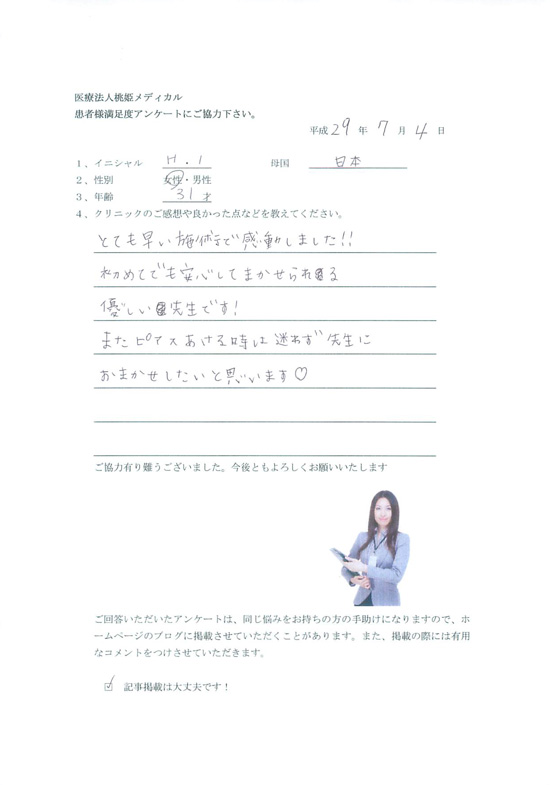 医療法人桃姫メディカル
患者様満足度アンケートにご協力下さい。
平成 29 年 7 月 4 日
1、イニシャル H.I 母国 日本
2、性別 女性・男性
3、年齢 31 才
4、クリニックのご感想や良かった点などを教えてください。
とても早い施術で感動しました!!
初めてでも安心してまかせられる
優しい先生です!
またピアスあける時は迷わず先生に
おまかせしたいと思います♡
ご協力有り難うございました。今後ともよろしくお願いいたします
ご回答いただいたアンケートは、同じ悩みをお持ちの方の手助けになりますので、ホ
ームページのブログに掲載させていただくことがあります。また、掲載の際には有用
なコメントをつけさせていただきます。
☑ 記事掲載は大丈夫です!